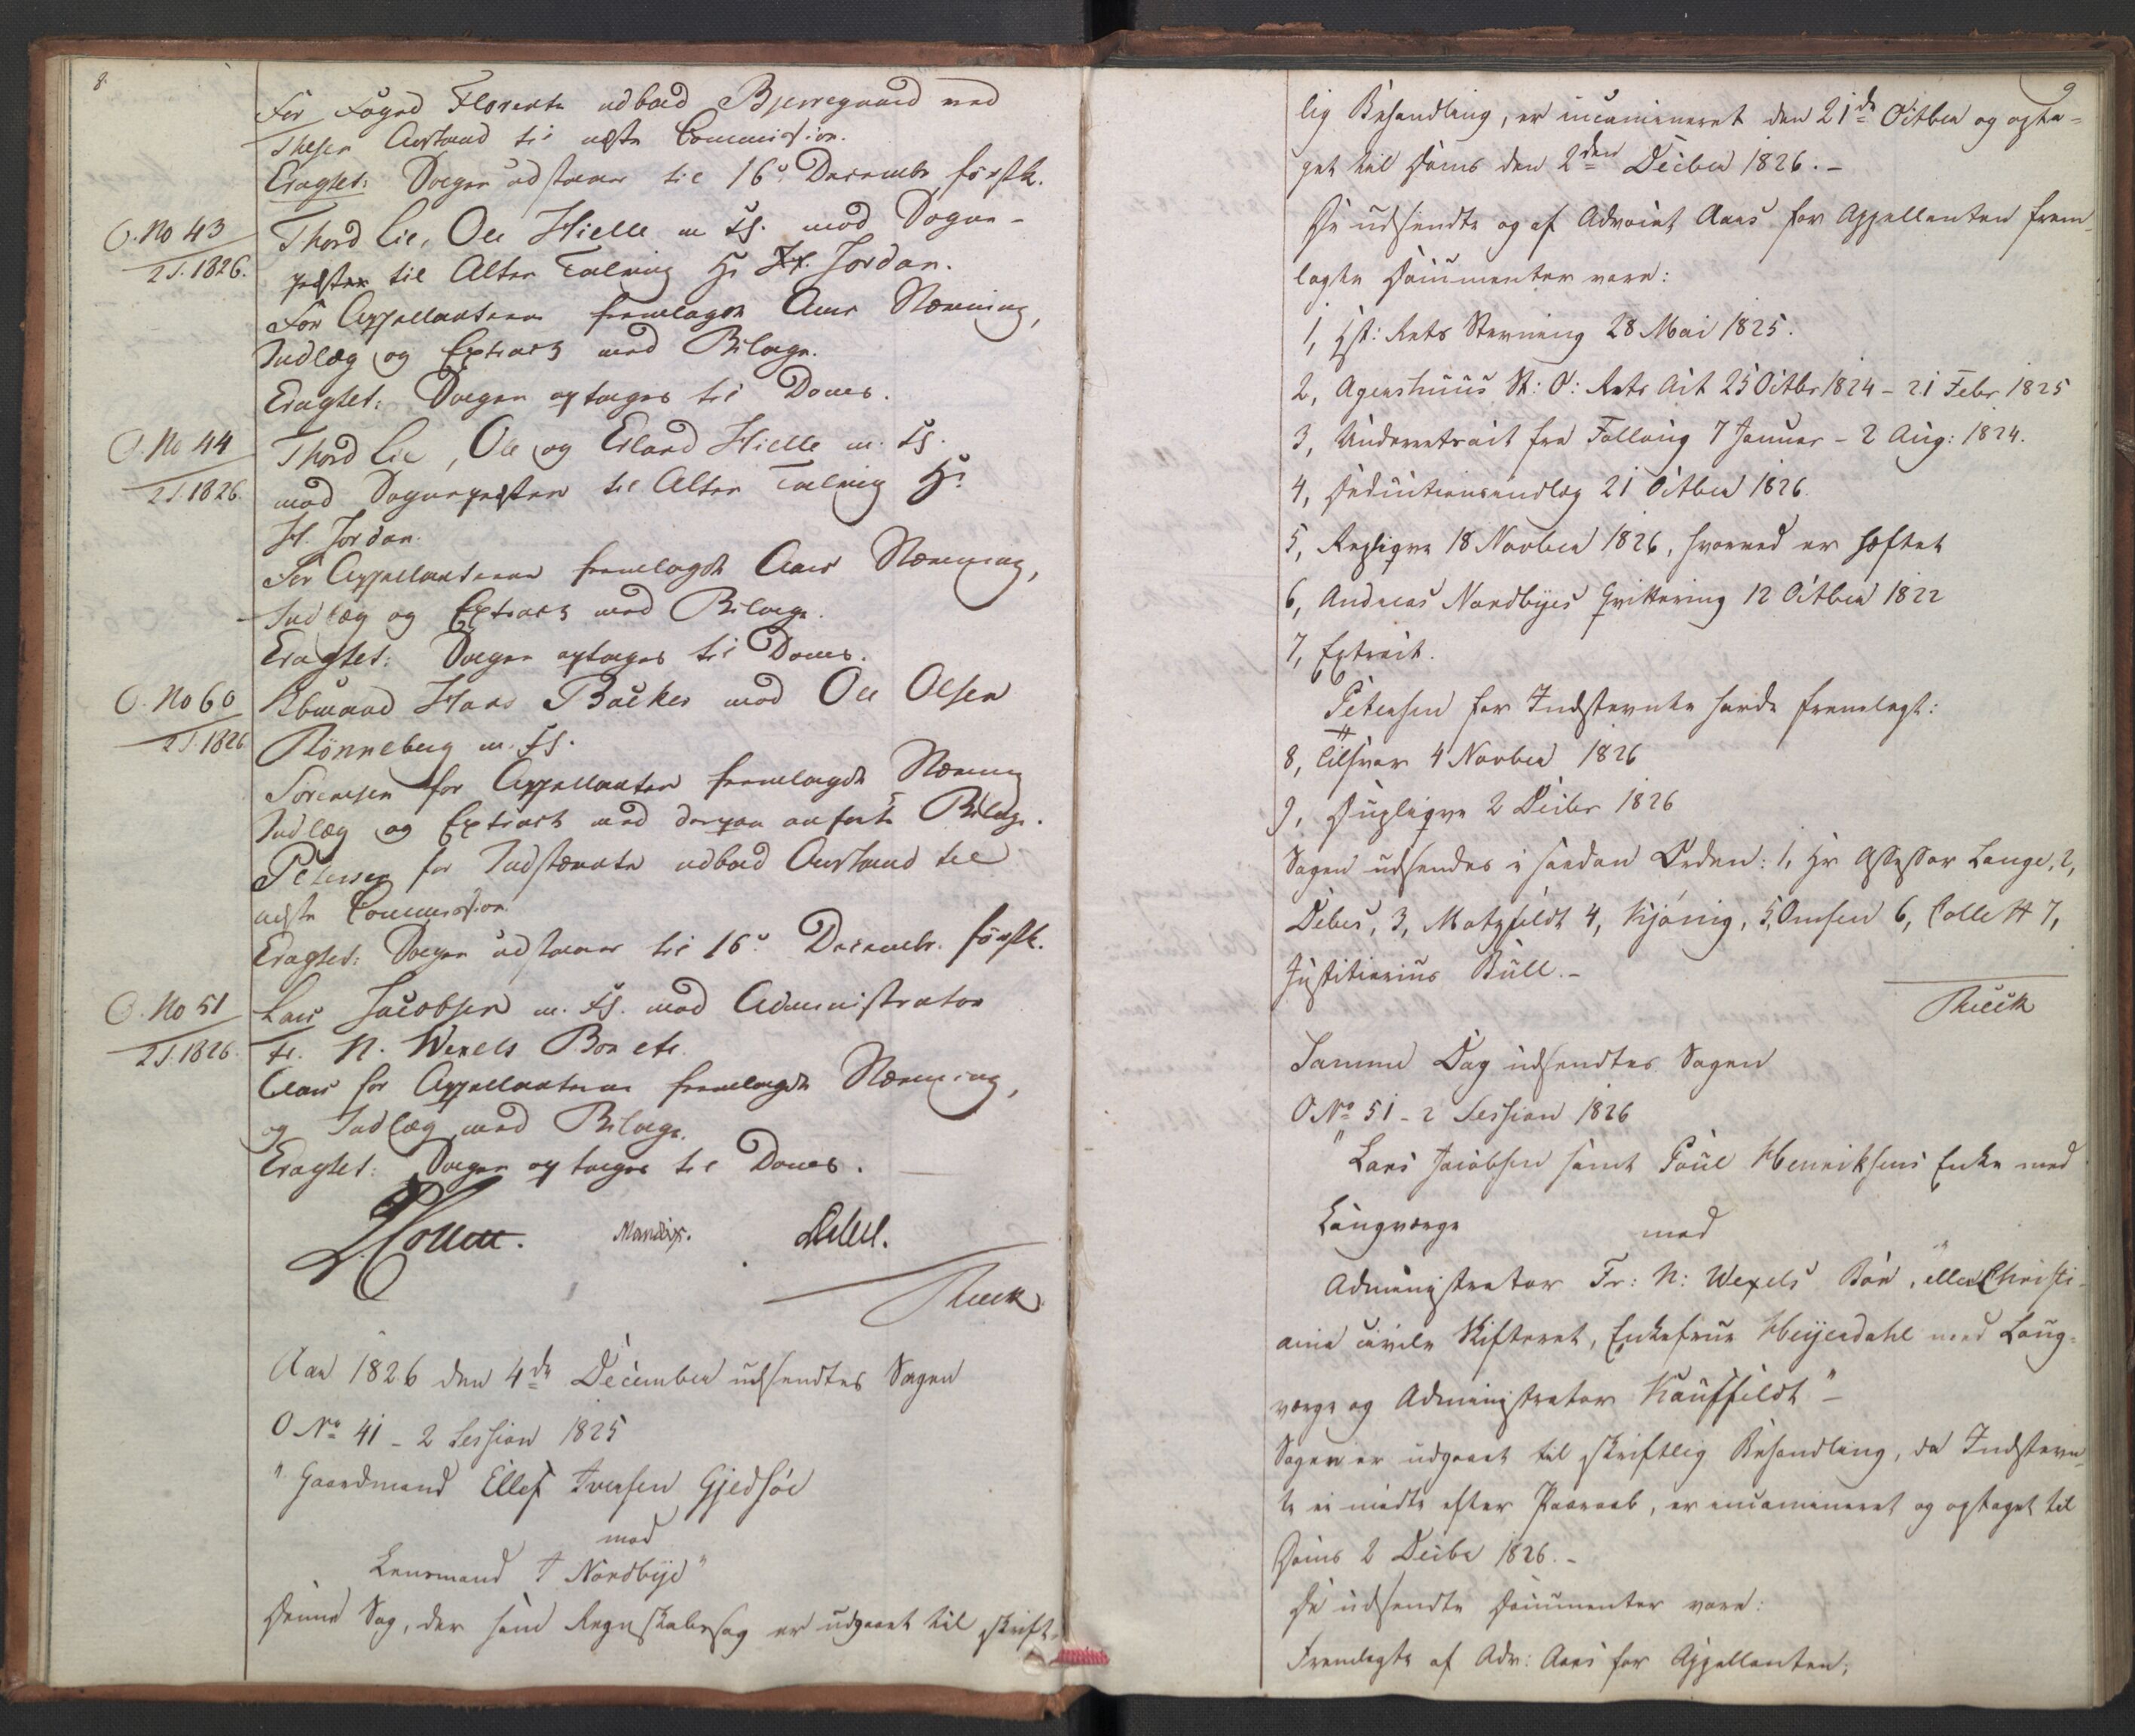 8.
For Foged Florentz udbad Bjerregaard med
Thesen Anstand til næste Commission.
Eragtet: Sagen udstaaer til 16de Decembr förstk.
O. No 43
2 S. 1826.
Thord Lie, Ole Hielle m. fl. mod Sogne-
præsten til Alten Talvig Hr H. Jordan.
For Appellanterne fremlagde Aars Stævning,
Indlæg og Extract med Bilage.
Eragtet: Sagen optages til Doms.
O. No 44
2 S. 1826.
Thord Lie, Ole og Erland Hielle m. fl.
mod Sognepræsten til Alten Talvig Hr
H. Jordan.
For Appellanterne fremlagde Aars Stævning,
Indlæg og Extract med Bilage.
Eragtet: Sagen optages til Doms.
O. No 60
2 S. 1826
Kbmand Hans Backer mod Ole Olsen
Rönneberg m. fl.
Sörensen for Appellanten fremlagde Stævning
Indlæg og Extract med derpaa anførte Bilage.
Petersen for Indstævnte udbad Anstand til
næste Commission.
Eragtet: Sagen udstaaer til 16de Decembr. förstk.
O. No 51
2 S. 1826.
Lars Jacobsen m. fl. mod Administrator
Fr. N. Wexels Boe etc.
Aars for Appellanterne fremlagde Stævning,
og Indlæg med Bilage.
Eragtet: Sagen optages til Doms.
J. Collett. Mandix. Debes.
Rieck
Aar 1826 den 4de December udsendtes Sagen
O No 41 - 2 Session 1825
"Gaardmand Ellef Iversen Gjedsöe
mod
Lensmand A Nordbye"
Denne Sag, der som Regnskabssag er udgaaet til skrift-
9
lig Behandling, er incamineret den 21de Octbr og opta-
get til Doms den 2den Decber 1826. -
De udsendte og af Advocat Aars for Appellanten frem-
lagte Documenter vare:
1, Hst: Rets Stevning 28 Mai 1825.
2, Agershuus St: O: Rets Act 25 Octbr 1824 - 21 Febr 1825
3, Underretsact fra Folloug 7 Januar - 2 Aug: 1824.
4, Deductionsindlæg 21 Octber 1826.
5, Repliqve 18 Novber 1826, hvorved er hæftet
6, Andreas Nordbyes Qvittering 12 Octber 1822
7, Extract.
Petersen for Indstevnte havde fremlagt:
8, Tilsvar 4 Novber 1826
9, Dupliqve 2 Decbr 1826
Sagen udsendes i saadan Orden: 1, Hr Assessor Lange, 2,
Debes, 3, Motzfeldt 4, Kjönig, 5, Omsen 6, Collett 7,
Justitiarius Bull. -
Rieck
Samme Dag udsendtes Sagen
O No 51 - 2 Session 1826
"Lars Jacobsen samt Poul Henriksens Enke med
Laugværge
mod
Administrator Fr: N: Wexels Boe, eller Christi-
ania civile Skifteret, Enkefrue Heyerdahl med Laug-
værge og Administrator Kauffeldt" -
Sagen er udgaaet til skriftlig Behandling, da Indstevn-
te ei mødte efter Paaraab, er incamineret og optaget til
Doms 2 Decbr 1826. -
De udsendte Documenter vare:
Fremlagte af Adv: Aars for Appellanten;